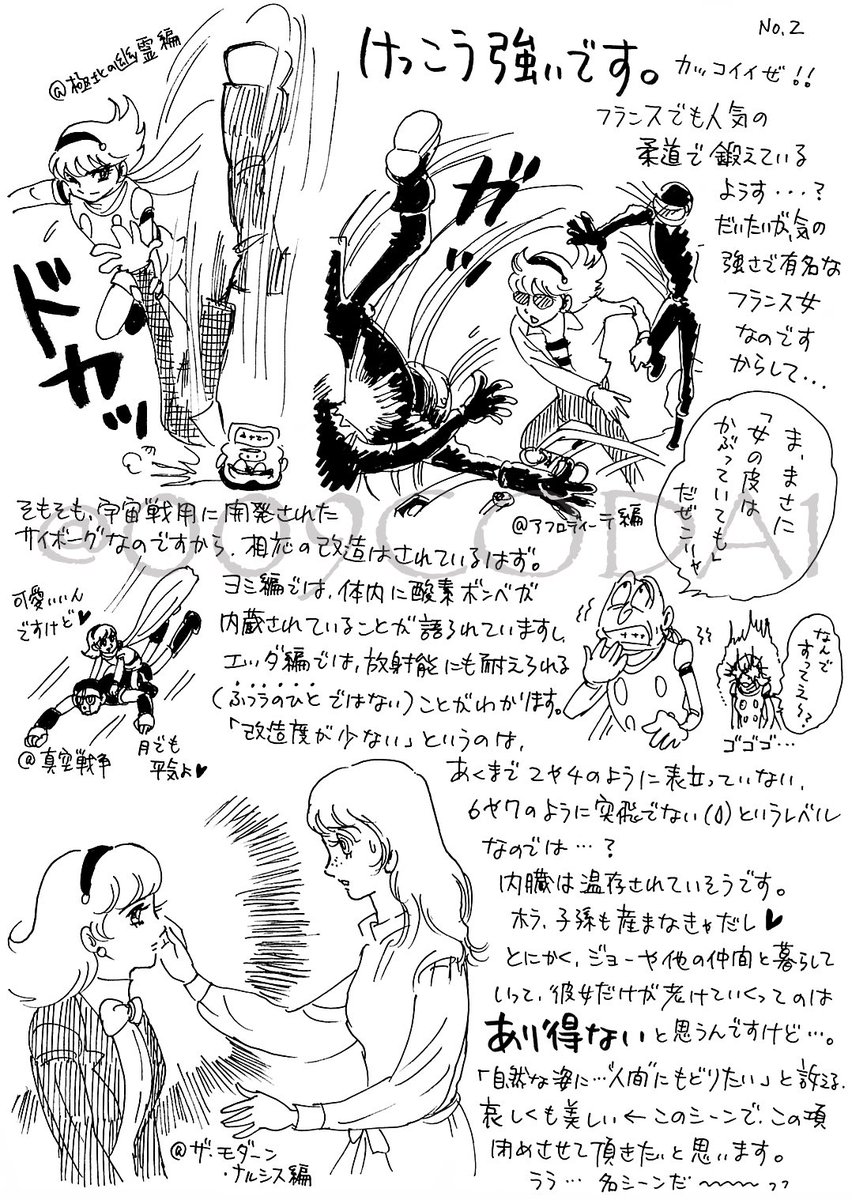 No.2
けっこう強いです。
カッコイイぜ!!
@極北の幽霊編
フランスでも人気の
柔道で鍛えている
ようす・・・?
だいたいが、気の
強さで有名な
フランス女
なのです
からして・・・
ドカッ
ガッ
ま、まさに
「女の皮は
かぶっていても」
だぜこいゃ
@アフロディーテ編
@009CODA1
そもそも、宇宙戦用に開発された
サイボーグなのですから、相応の改造はされているはず。
ヨミ編では、体内に酸素ボンベが
内蔵されていることが語られていますし、
エッダ編では、放射能にも耐えられる
(ふつうのひとではない)ことがわかります。
「改造度が少ない」というのは、
可愛いいん
ですけど♥
@真空戦争
月でも
平気よ♥
なんで
すってえ〜?
ゴゴゴ…
あくまで2や4のように表立っていない、
6や7のように突飛でない(0)というレベル
なのでは…?
内臓は温存されていそうです。
ホラ、子孫も産まなきゃだし♥
とにかく、ジョーや他の仲間と暮らして
いって、彼女だけが老けていくってのは
あり得ないと思うんですけど…。
「自然な姿に…"人間"にもどりたい」と訴える、
哀しくも美しい←このシーンで、この項
閉めさせて頂きたいと思います。
うう… 名シーンだ〜〜〜
@ザ・モダーン
・ナルシス編